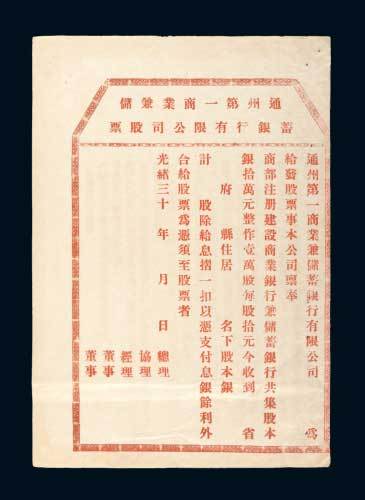 通州第一商業兼儲
蓄銀行有限公司股票
通州第一商業兼儲蓄銀行有限公司 為
給發股票事本公司稟奉
商部注册建設商業銀行兼儲蓄銀行共集股本
銀拾萬元整作壹萬股每股拾元今收到 省
府 縣住居 名下股本銀
計 股除給息摺一扣以憑支付息銀餘利外
合給股票為憑須至股票者
光緒三十 年 月 日 總理
協理
經理
董事
董事